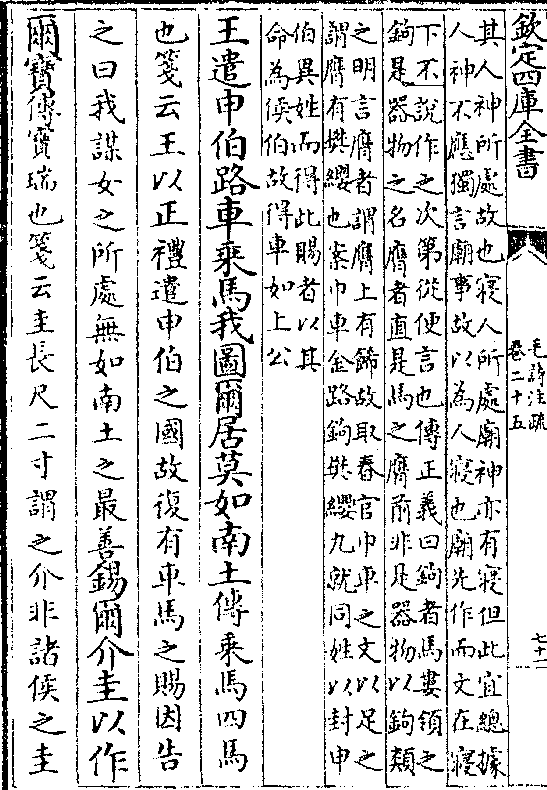 欽定四庫全書
毛詩注疏
卷二十五
七十一
其人神所處故也寢人所處廟神亦有寢但此宜總據
人神不應獨言廟事故以為人寢也廟先作而文在寢
下不說作之次第從便言也傳正義曰鉤者馬婁頷之
鉤是器物之名膺者直是馬之膺前非是器物以鉤類
之明言膺者謂膺上有飾故取春官巾車之文以足之
謂膺有樊纓也案巾車金路鉤樊纓九就同姓以封申
伯異姓而得此賜者以其
命為侯伯故得車如上公
王遣申伯路車乘馬我圖爾居莫如南土傳乘馬四馬
也箋云王以正禮遣申伯之國故復有車馬之賜因告
之曰我謀女之所處無如南土之最善錫爾介圭以作
爾寶傳寶瑞也箋云圭長尺二寸謂之介非諸侯之圭